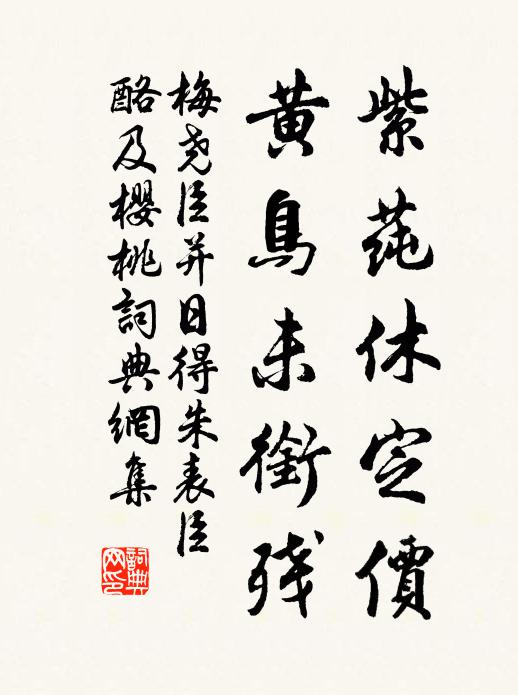 紫蒓休定價
黃鳥未銜殘
梅堯臣并日得朱表臣
酪及櫻桃詞典網集
詞典
网印